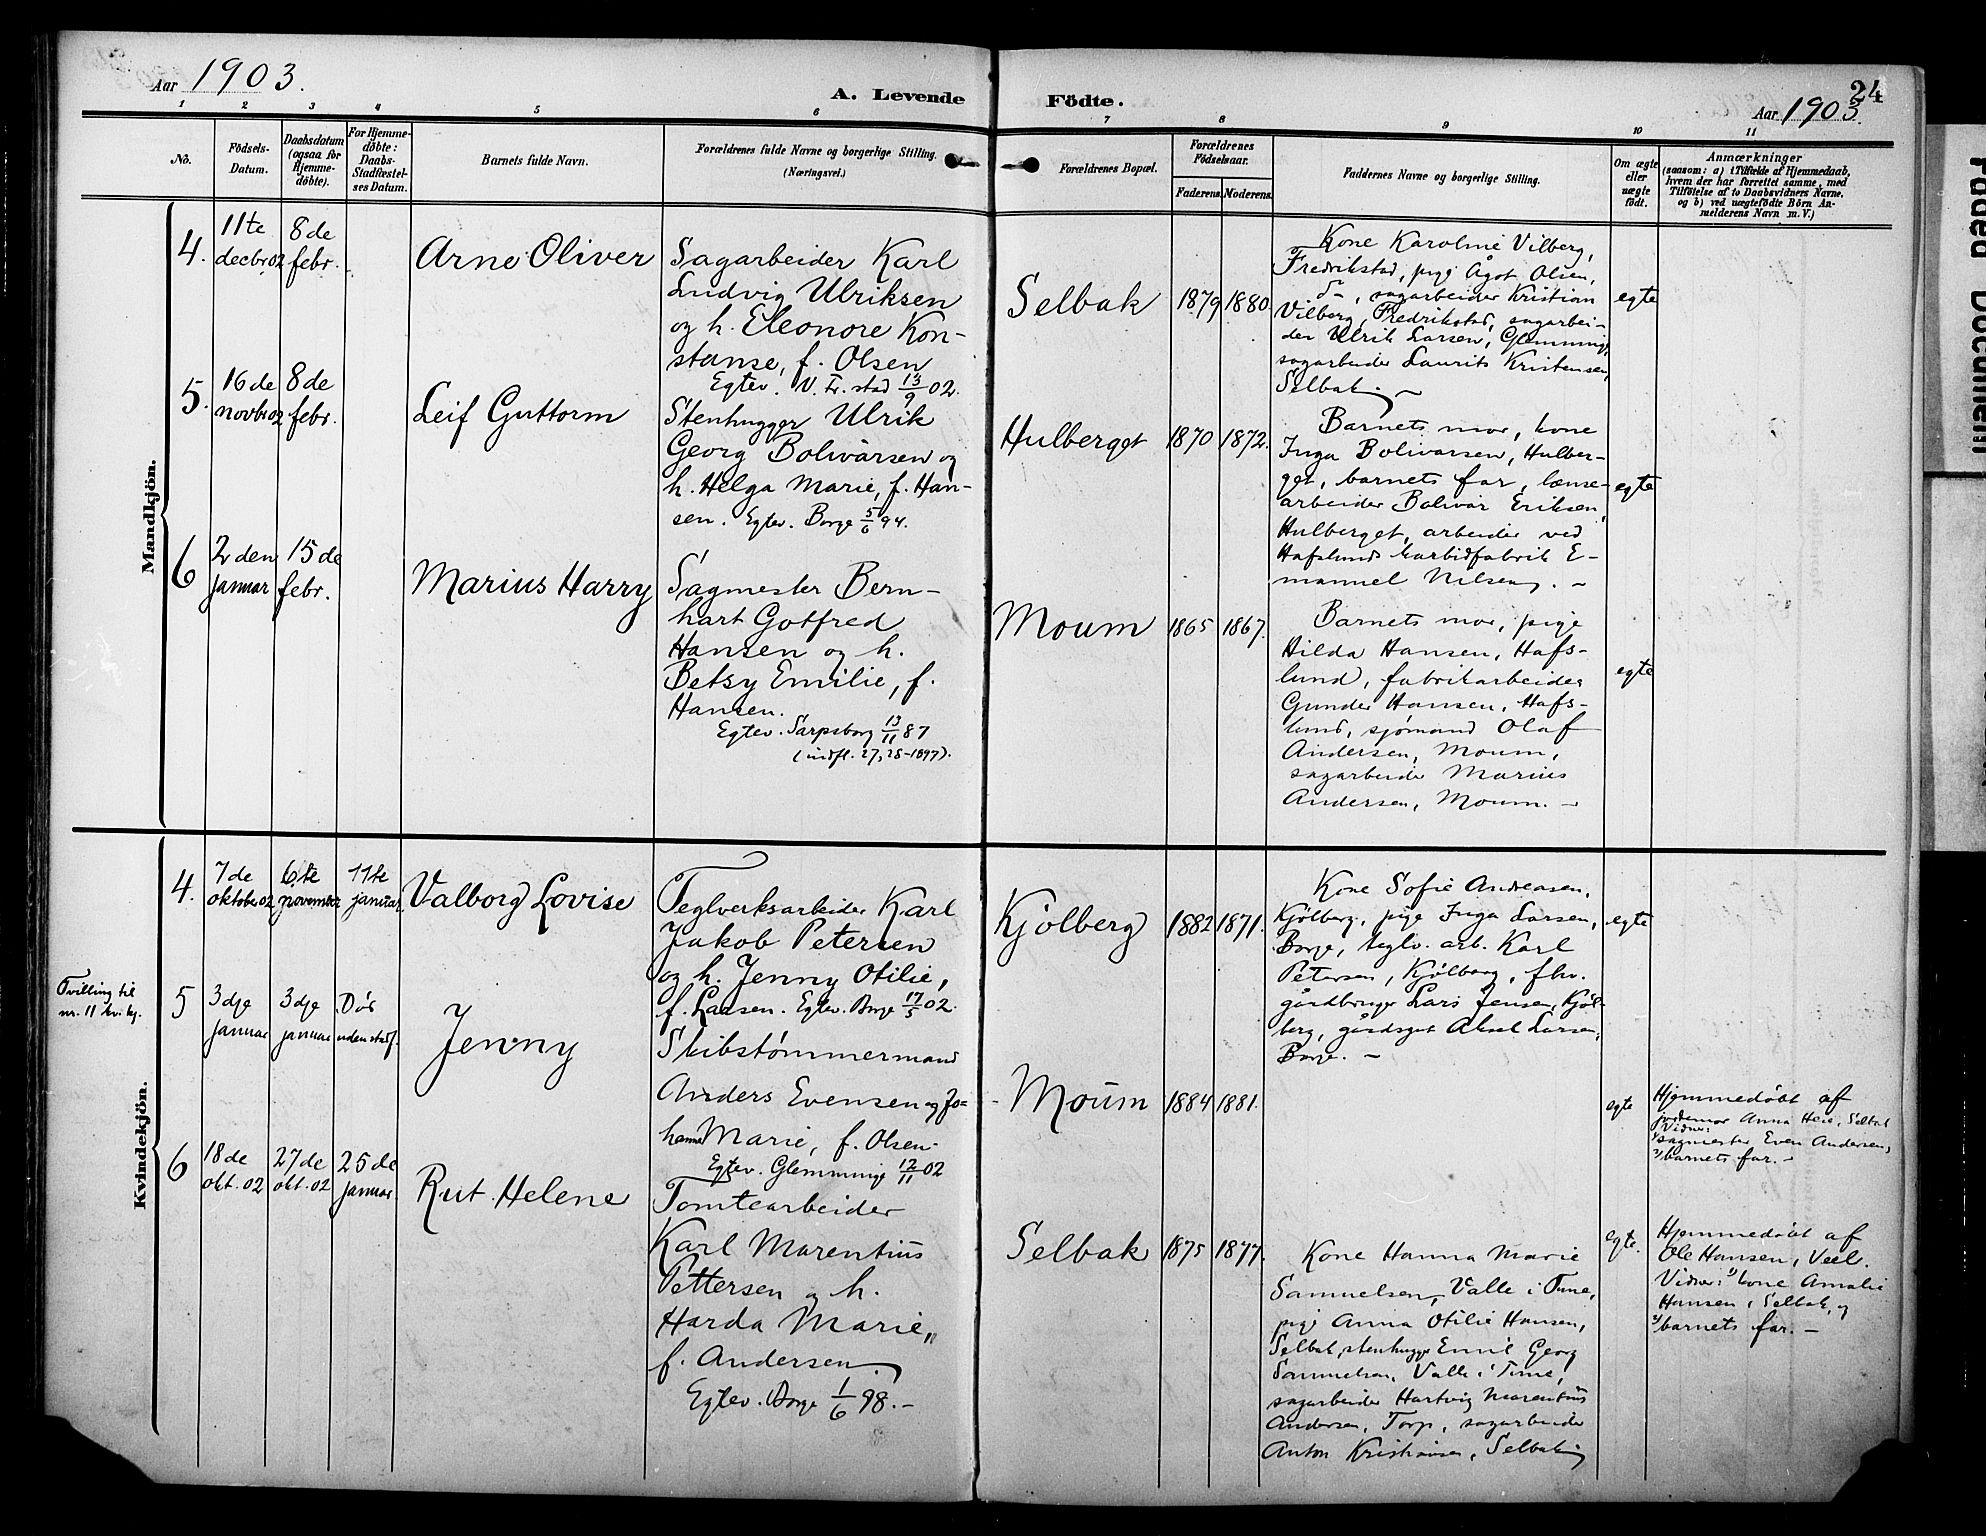 Aar 1903.
A. Levende
Födte.
24
Aar 1903.
1 2 3 4 5 6 7 8 9 10 11
No.
Födsels-
Datum.
Daabsdatum
(ogsaa for
Hjemme-
döbte).
For Hjemme-
döbte:
Daabs-
Stadfæstel-
ses Datum.
Barnets fulde Navn.
Forældrenes fulde Navne og borgerlige Stilling.
(Næringsvei.)
Forældrenes Bopæl.
Forældrenes
Födselsaar.
Faderens.
Moderens.
Faddernes Navne og borgerlige Stilling.
Om ægte
eller
uægte
födt.
Anmærkninger
(saasom: a) i Tilfælde af Hjemmedaab,
hvem der har forrettet samme, med
Tilföielse af to Daabsvidners Navne,
og b) ved uægtefödte Börn An-
melderens Navn m. V.)
Mandkjön.
4.
11te
decbr. 02
8de
febr.
Arne Oliver
Sagarbeider Karl
Ludvig Ulriksen
og h. Eleonore Kon-
stanse, f. Olsen
Egtev. V. Fr.stad 13/9 02.
Selbak
1879
1880.
Kone Karoline Vilberg,
Fredrikstad, pige Ågot Olsen,
do, sagarbeider Kristian
Vilberg, Fredrikstad, sagarbei-
der Ulrik Larsen, Glemminge,
sagarbeider Laurits Kristensen,
Selbak. –
egte
5.
16de
novbr 02
8de
febr.
Leif Guttorm
Stenhugger Ulrik
Georg Bolivarsen og
h. Helga Marie, f. Han-
sen. Egtev. Borge 5/6 94.
Hulberget
1870
1872.
Barnets mor, kone
Inga Bolivarsen, Hulber-
get, barnets far, lænse-
arbeider Bolivar Eriksen,
Hulberget, arbeider ved
Hafslunds karbidfabrik E-
manuel Nilsen. –
egte
6
2den
januar
15de
febr.
Marius Harry
Sagmester Bern-
hart Gotfred
Hansen og h.
Betsy Emilie, f.
Hansen.
Egtev. Sarpsborg 13/11 87
(indfl. 27, 28-1897).
Moum
1865
1867.
Barnets mor, pige
Hilda Hansen, Hafs-
lund, fabrikarbeider
Gunder Hansen, Hafs-
lund, sjømand Olaf
Andersen, Moum,
sagarbeider Marius
Andersen, Moum. –
egte
Kvindekjön.
4.
7de
oktober 02
6te
november 02
11te
januar.
Valborg Lovise
Teglverksarbeider Karl
Jakob Petersen
og h. Jenny Otilie,
f. Larsen. Egtev. Borge 17/5 02.
Kjølberg
1882
1871.
Kone Sofie Andreasen,
Kjølberg, pige Inga Larsen,
Borge, teglv. arb. Karl
Petersen, Kjølberg, fhv.
gårdbruger Lars Jensen, Kjøl-
berg, gårdsgut Aksel Larsen,
Borge. –
egte
Tvilling til
nr. 11 kv. kj.
5
3dje
januar
3dje
januar
Død
uden stadf.
Jenny
Skibstømmermand
Anders Evensen og Jo-
hanne Marie, f. Olsen.
Egtev. Glemminge 12/11 02
Moum
1884
1881.
egte
Hjemmedøbt af
jordemor Anna Heie, Selbak
Vidner:
1) sagmester Even Andersen,
2) barnets far. –
6
18de
okt. 02
27de
okt. 02
25de
januar.
Rut Helene
Tomtearbeider
Karl Marentius
Pettersen og h.
Harda Marie,
f. Andersen
Egtev. Borge 1/6 98. –
Selbak
1875
1877.
Kone Hanna Marie
Samuelsen, Valle i Tune,
pige Anna Otilie Hansen,
Selbak, stenhugger Emil Georg
Samuelsen, Valle i Tune,
sagarbeider Hartvig Marentius
Andersen, Torp, sagarbeider
Anton Kristiansen, Selbak
egte.
Hjemmedøbt af
Ole Hansen, Veel.
Vidner: 1) kone Amalie
Hansen, Selbak, og
2) barnets far. –
Faded Document